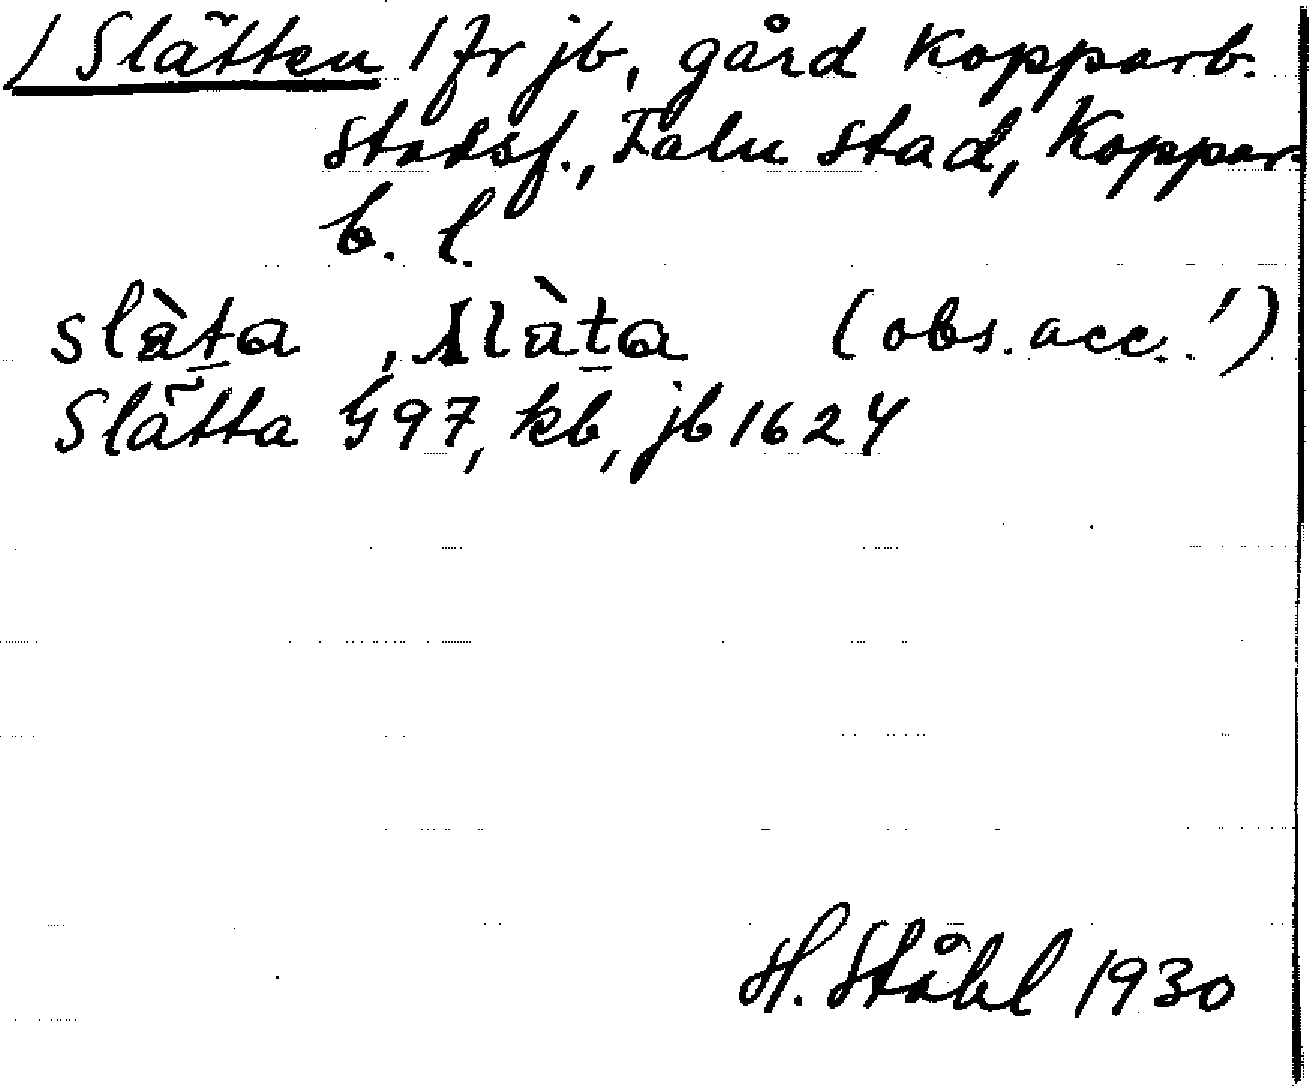 / Slätten / fr jb, gård Kopparb.
Stadsf., Falu stad, Koppar-
b. l.
slàta, slàta (obs. acc.!)
Slätta G97, kb, jb 1624
H. Ståhl 1930